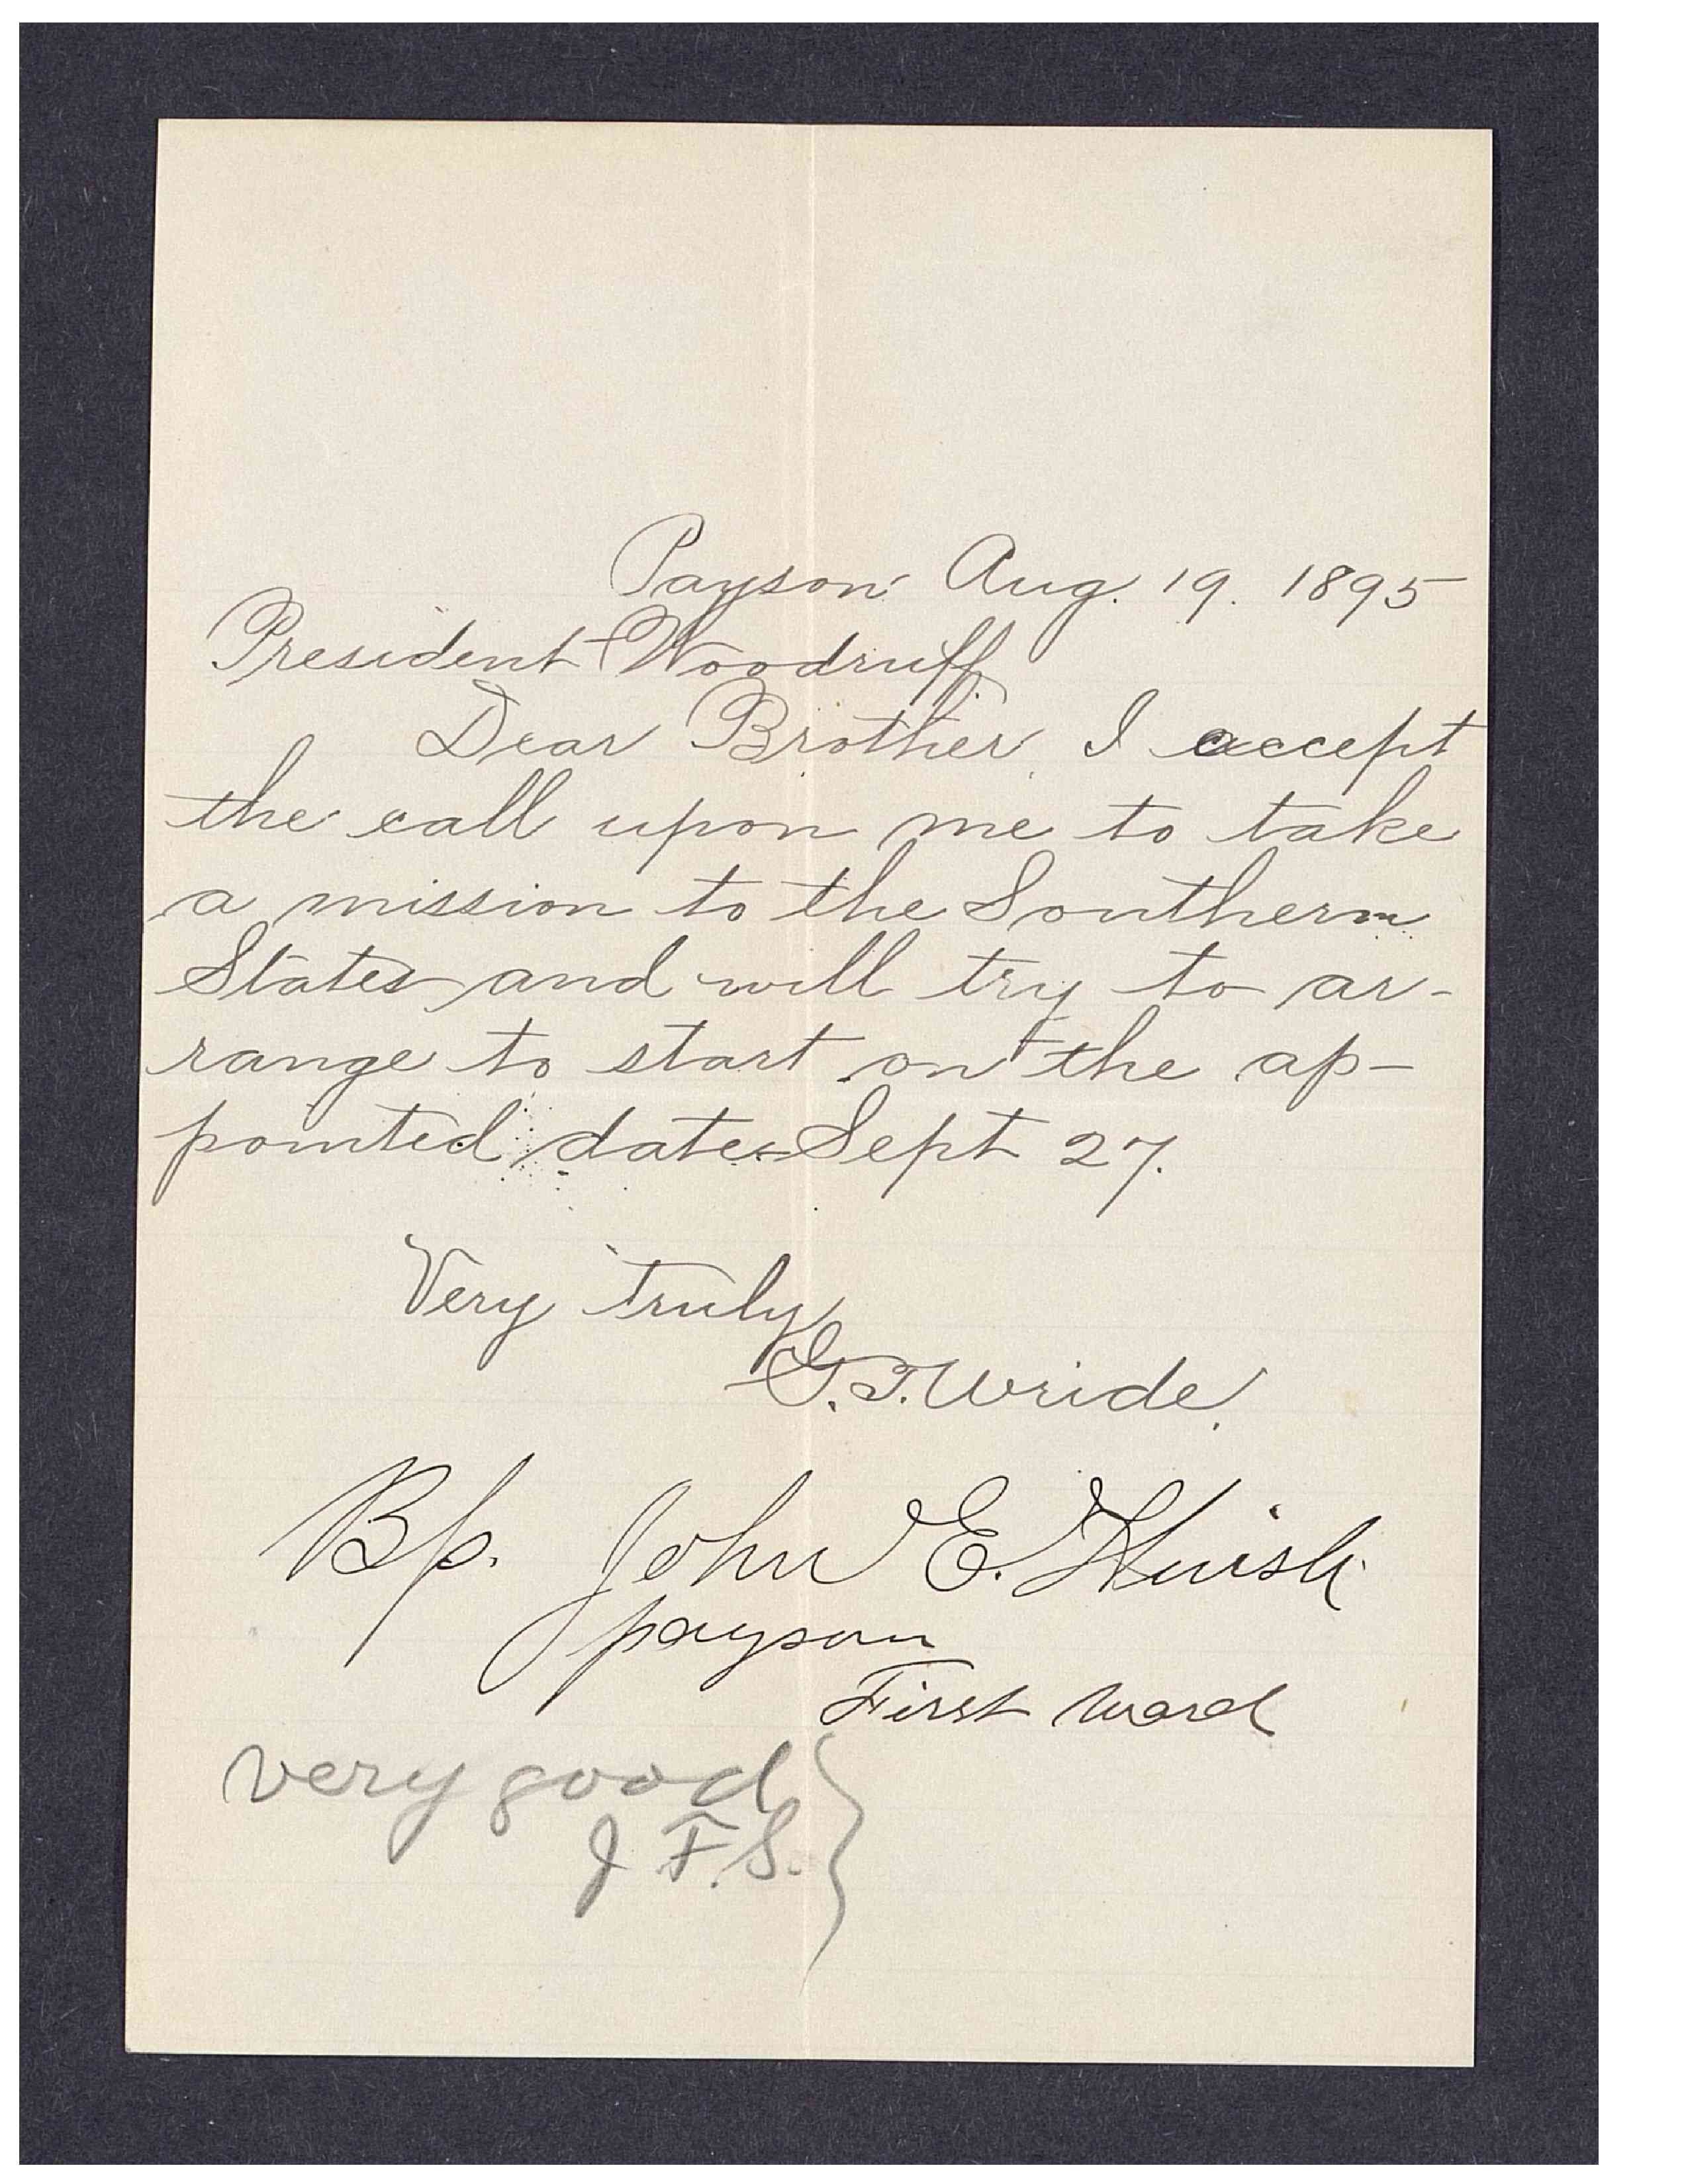 Payson Aug. 19. 1895
President Woodruff.
Dear Brother. I accept
the call upon me to take
a mission to the Southern
States and will try to ar-
range to start on the ap-
pointed date Sept 27.
Very truly
G.T. Wride.
Bp. John E. Huish
payson
First Ward
very good
J F. S.